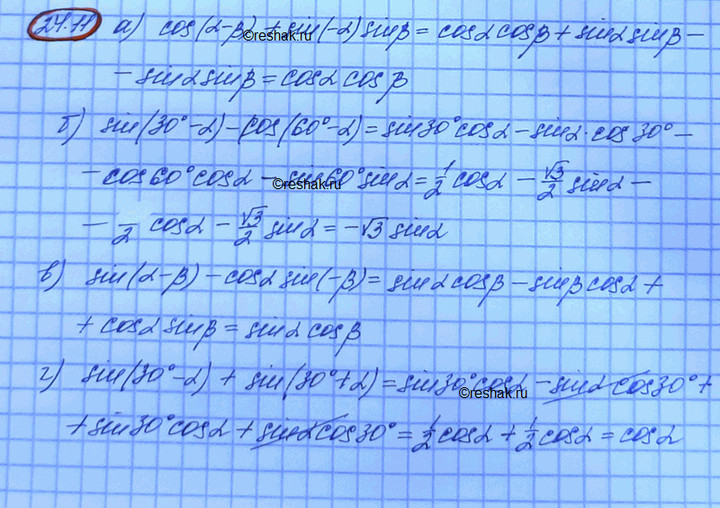 24.11 а) cos(α-β) + sin(-α)sinβ = cosα cosβ + sinα sinβ -
- sinα sinβ = cosα cosβ
б) sin(30°-α) - cos(60°-α) = sin30°cosα - sinα·cos30° -
- cos60°cosα - sin60°sinα = 1/2 cosα - √3/2 sinα -
- /2 cosα - √3/2 sinα = -√3 sinα
в) sin(α-β) - cosα sin(-β) = sinα cosβ - sinβ cosα +
+ cosα sinβ = sinα cosβ
г) sin(30°-α) + sin(30°+α) = sin30°cosα - sinα cos30° +
+ sin30°cosα + sinα cos30° = 1/2 cosα + 1/2 cosα = cosα
©reshak.ru
©reshak.ru
©reshak.ru